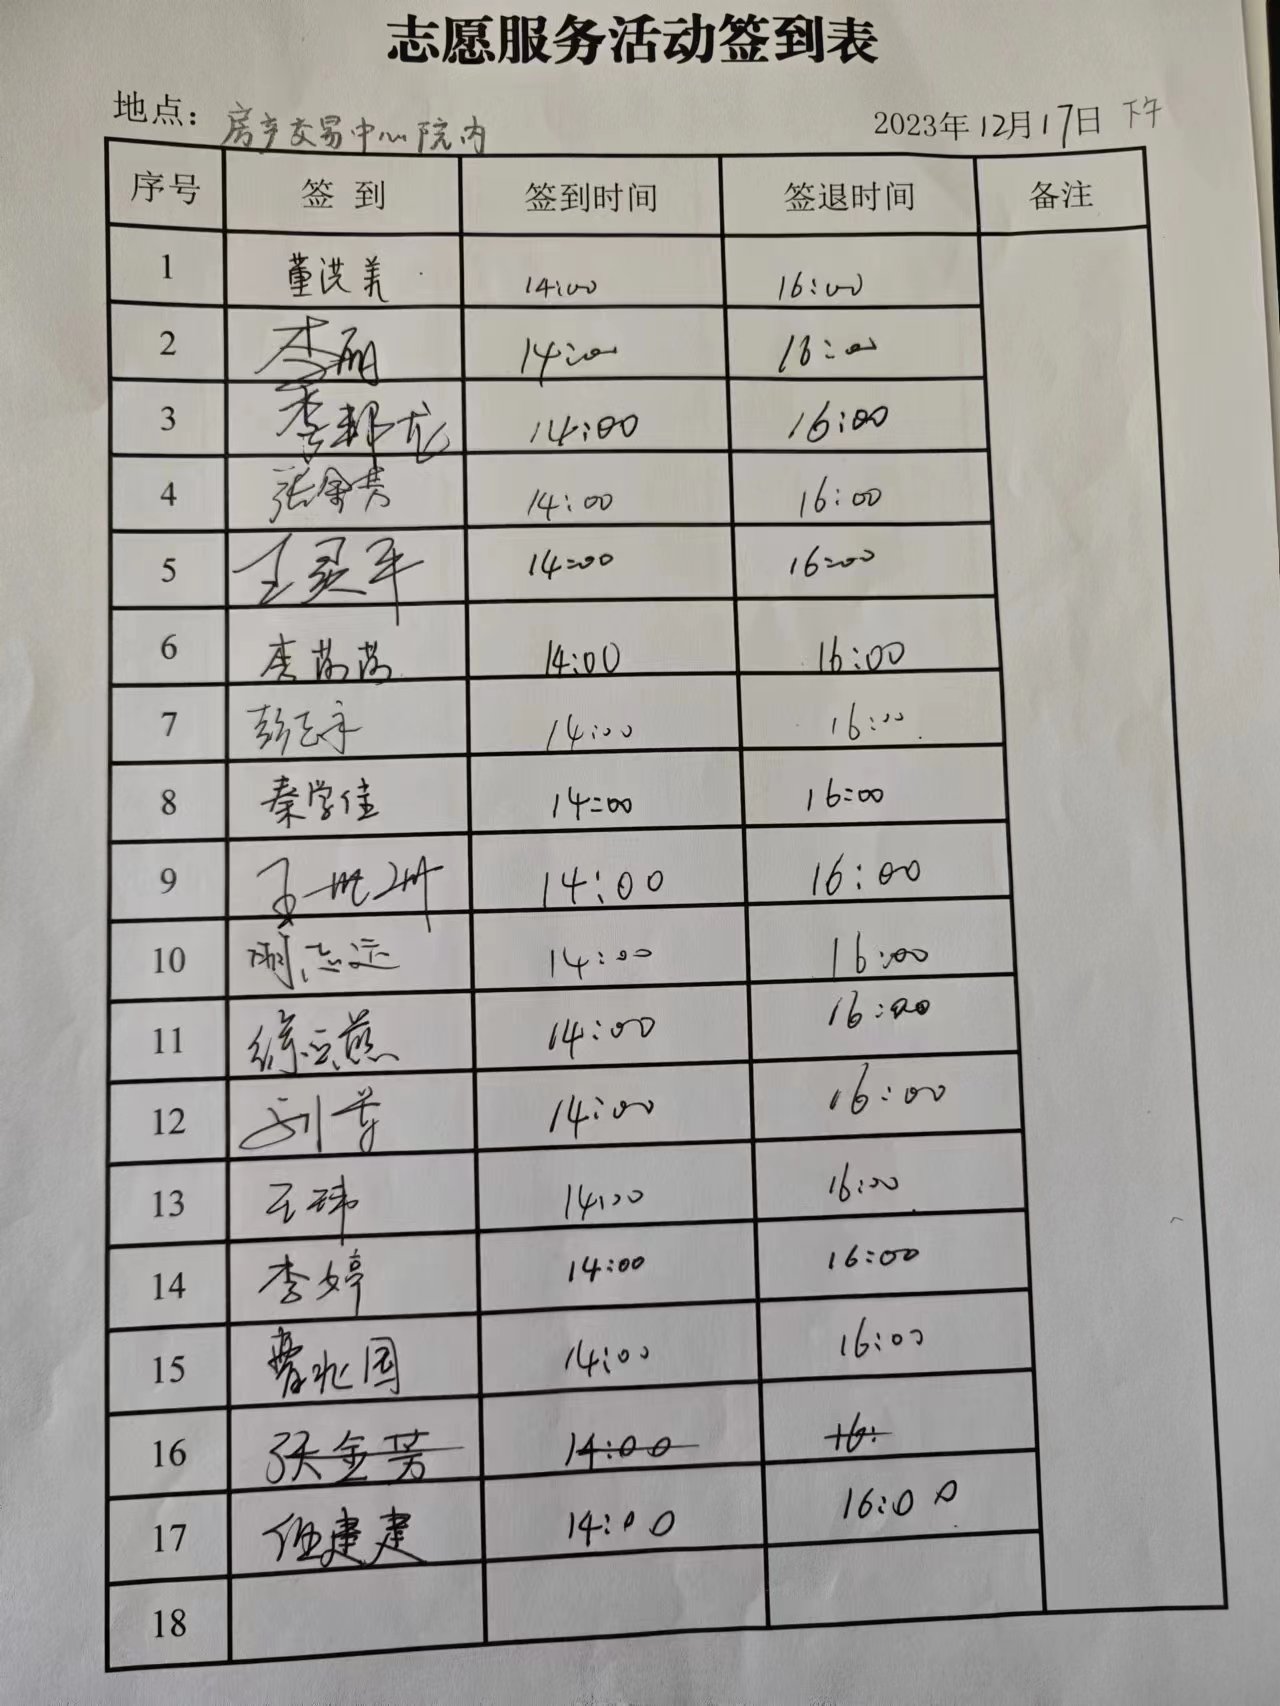 志愿服务活动签到表
地点：房产交易中心院内 2023年12月17日 下午
序号 签到 签到时间 签退时间 备注
1 董洪美 14:00 16:00
2 李丽 14:00 16:00
3 李邦龙 14:00 16:00
4 张金芳 14:00 16:00
5 王灵平 14:00 16:00
6 李 14:00 16:00
7 彭 14:00 16:00
8 秦学佳 14:00 16:00
9 王世洲 14:00 16:00
10 志远 14:00 16:00
11 徐立燕 14:00 16:00
12 刘芳 14:00 16:00
13 王玮 14:00 16:00
14 李婷 14:00 16:00
15 费兆国 14:00 16:00
16 张金芳 14:00 16:
17 伍建建 14:00 16:00
18